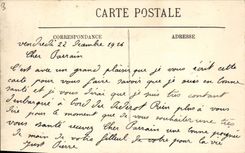 CARTE POSTALE
CORRESPONDANCE
vendredi 22 Decembre 1916
Cher Parrain
C'est avec un grand plaisir que je vous écrit cette
carte pour vous faire savoir que je suis en bonne
santé et je vous dirai que je suis très content
d'embarqué à bord du Rien plus à vous
dire pour le moment que de vous souhaiter une très
santé recevez cher Parrain une bonne poignée
de main de votre filleul de votre pour la vie
Just Pierre